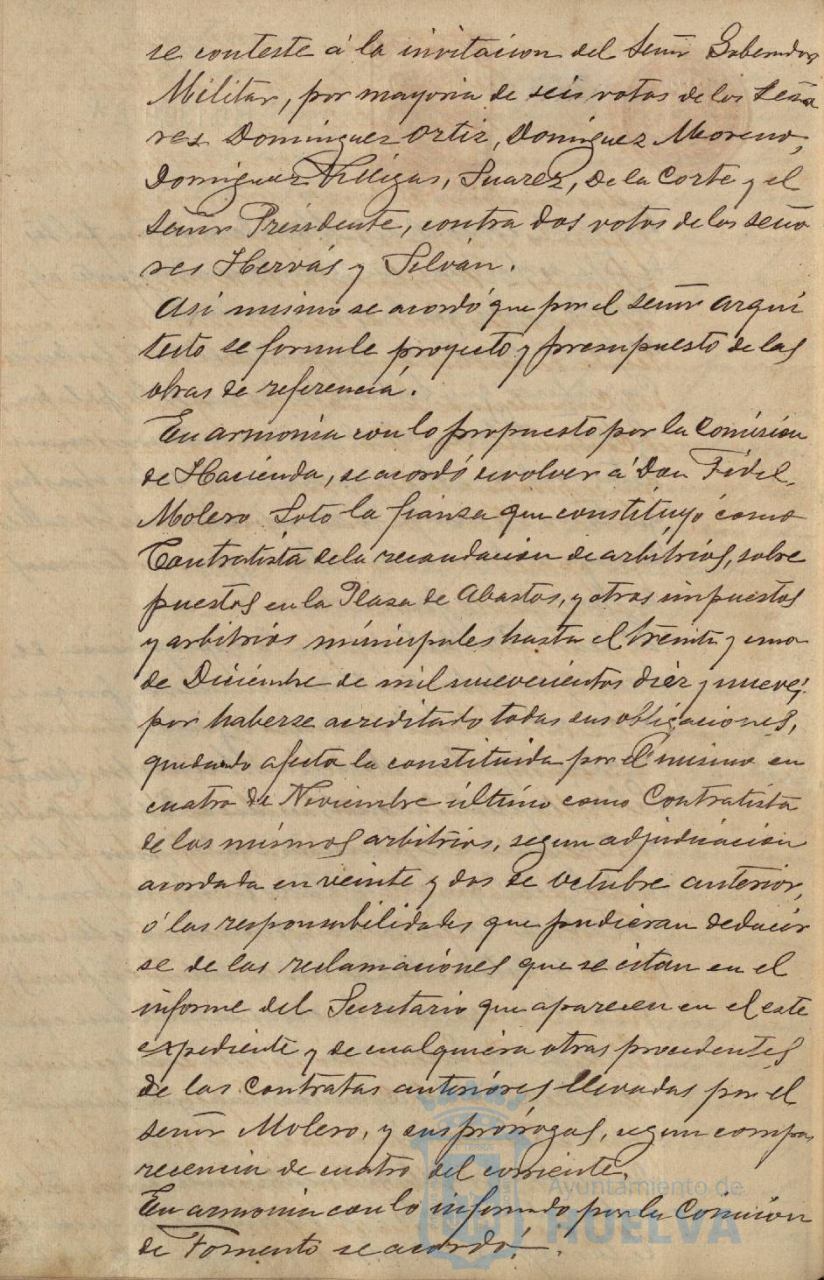 se conteste á la invitacion del Señor Gobernador
Militar, por mayoria de seis votos de los Seño
res Dominguez Ortiz, Dominguez Moreno,
Dominguez Villigas, Suarez, De la Corte y el
Señor Presidente, contra dos votos de los seño
res Hervás y Silván.
Asi mismo se acordó que por el señor arqui
tecto se formule proyecto y presupuesto de las
obras de referencia.
En armonia con lo propuesto por la Comision
de Hacienda, se acordó devolver á Don Fidel
Molero Soto la fianza que constituyó como
Contratista de la recaudacion de arbitrios, sobre
puestos en la Plaza de Abastos, y otros impuestos
y arbitrios municipales hasta el treinta y uno
de Diciembre de mil nuevecientos diez y nueve,
por haberse acreditado todas sus obligaciones,
quedando afecta la constituida por el mismo en
cuatro de Noviembre último como Contratista
de los mismos arbitrios, segun adjudicacion
acordada en veinte y dos de octubre anterior,
á las responsabilidades que pudieran deducir
se de las reclamaciones que se citan en el
informe del Secretario que aparecen en el este
expediente y de cualquiera otras procedentes
de las contratas anteriores llevadas por el
señor Molero, y sus prórrogas, segun compa
recencia de cuatro del corriente.
En armonia con lo informado por la Comision
de Fomento se acordó:
Ayuntamiento de
HUELVA